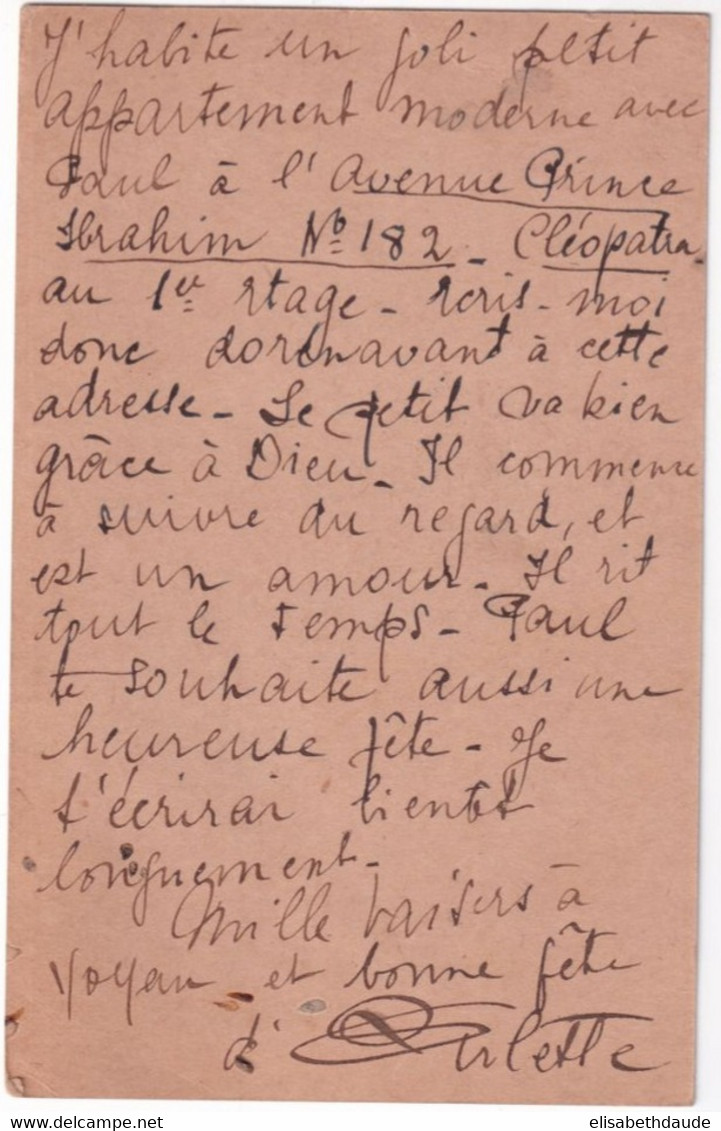 J'habite un joli petit
appartement moderne avec
Paul à l'Avenue Prince
Ibrahim No 182 - Cléopatra
au 1er etage - ecris-moi
donc dorénavant à cette
adresse - Le petit va bien
grâce à Dieu - Il commence
à suivre du regard, et
est un amour - Il rit
tout le temps - Paul
te souhaite aussi une
heureuse fête - Je
t'écrirai bientôt
longuement -
Mille baisers à
et bonne fête
d'Arlette
elisabethdaude